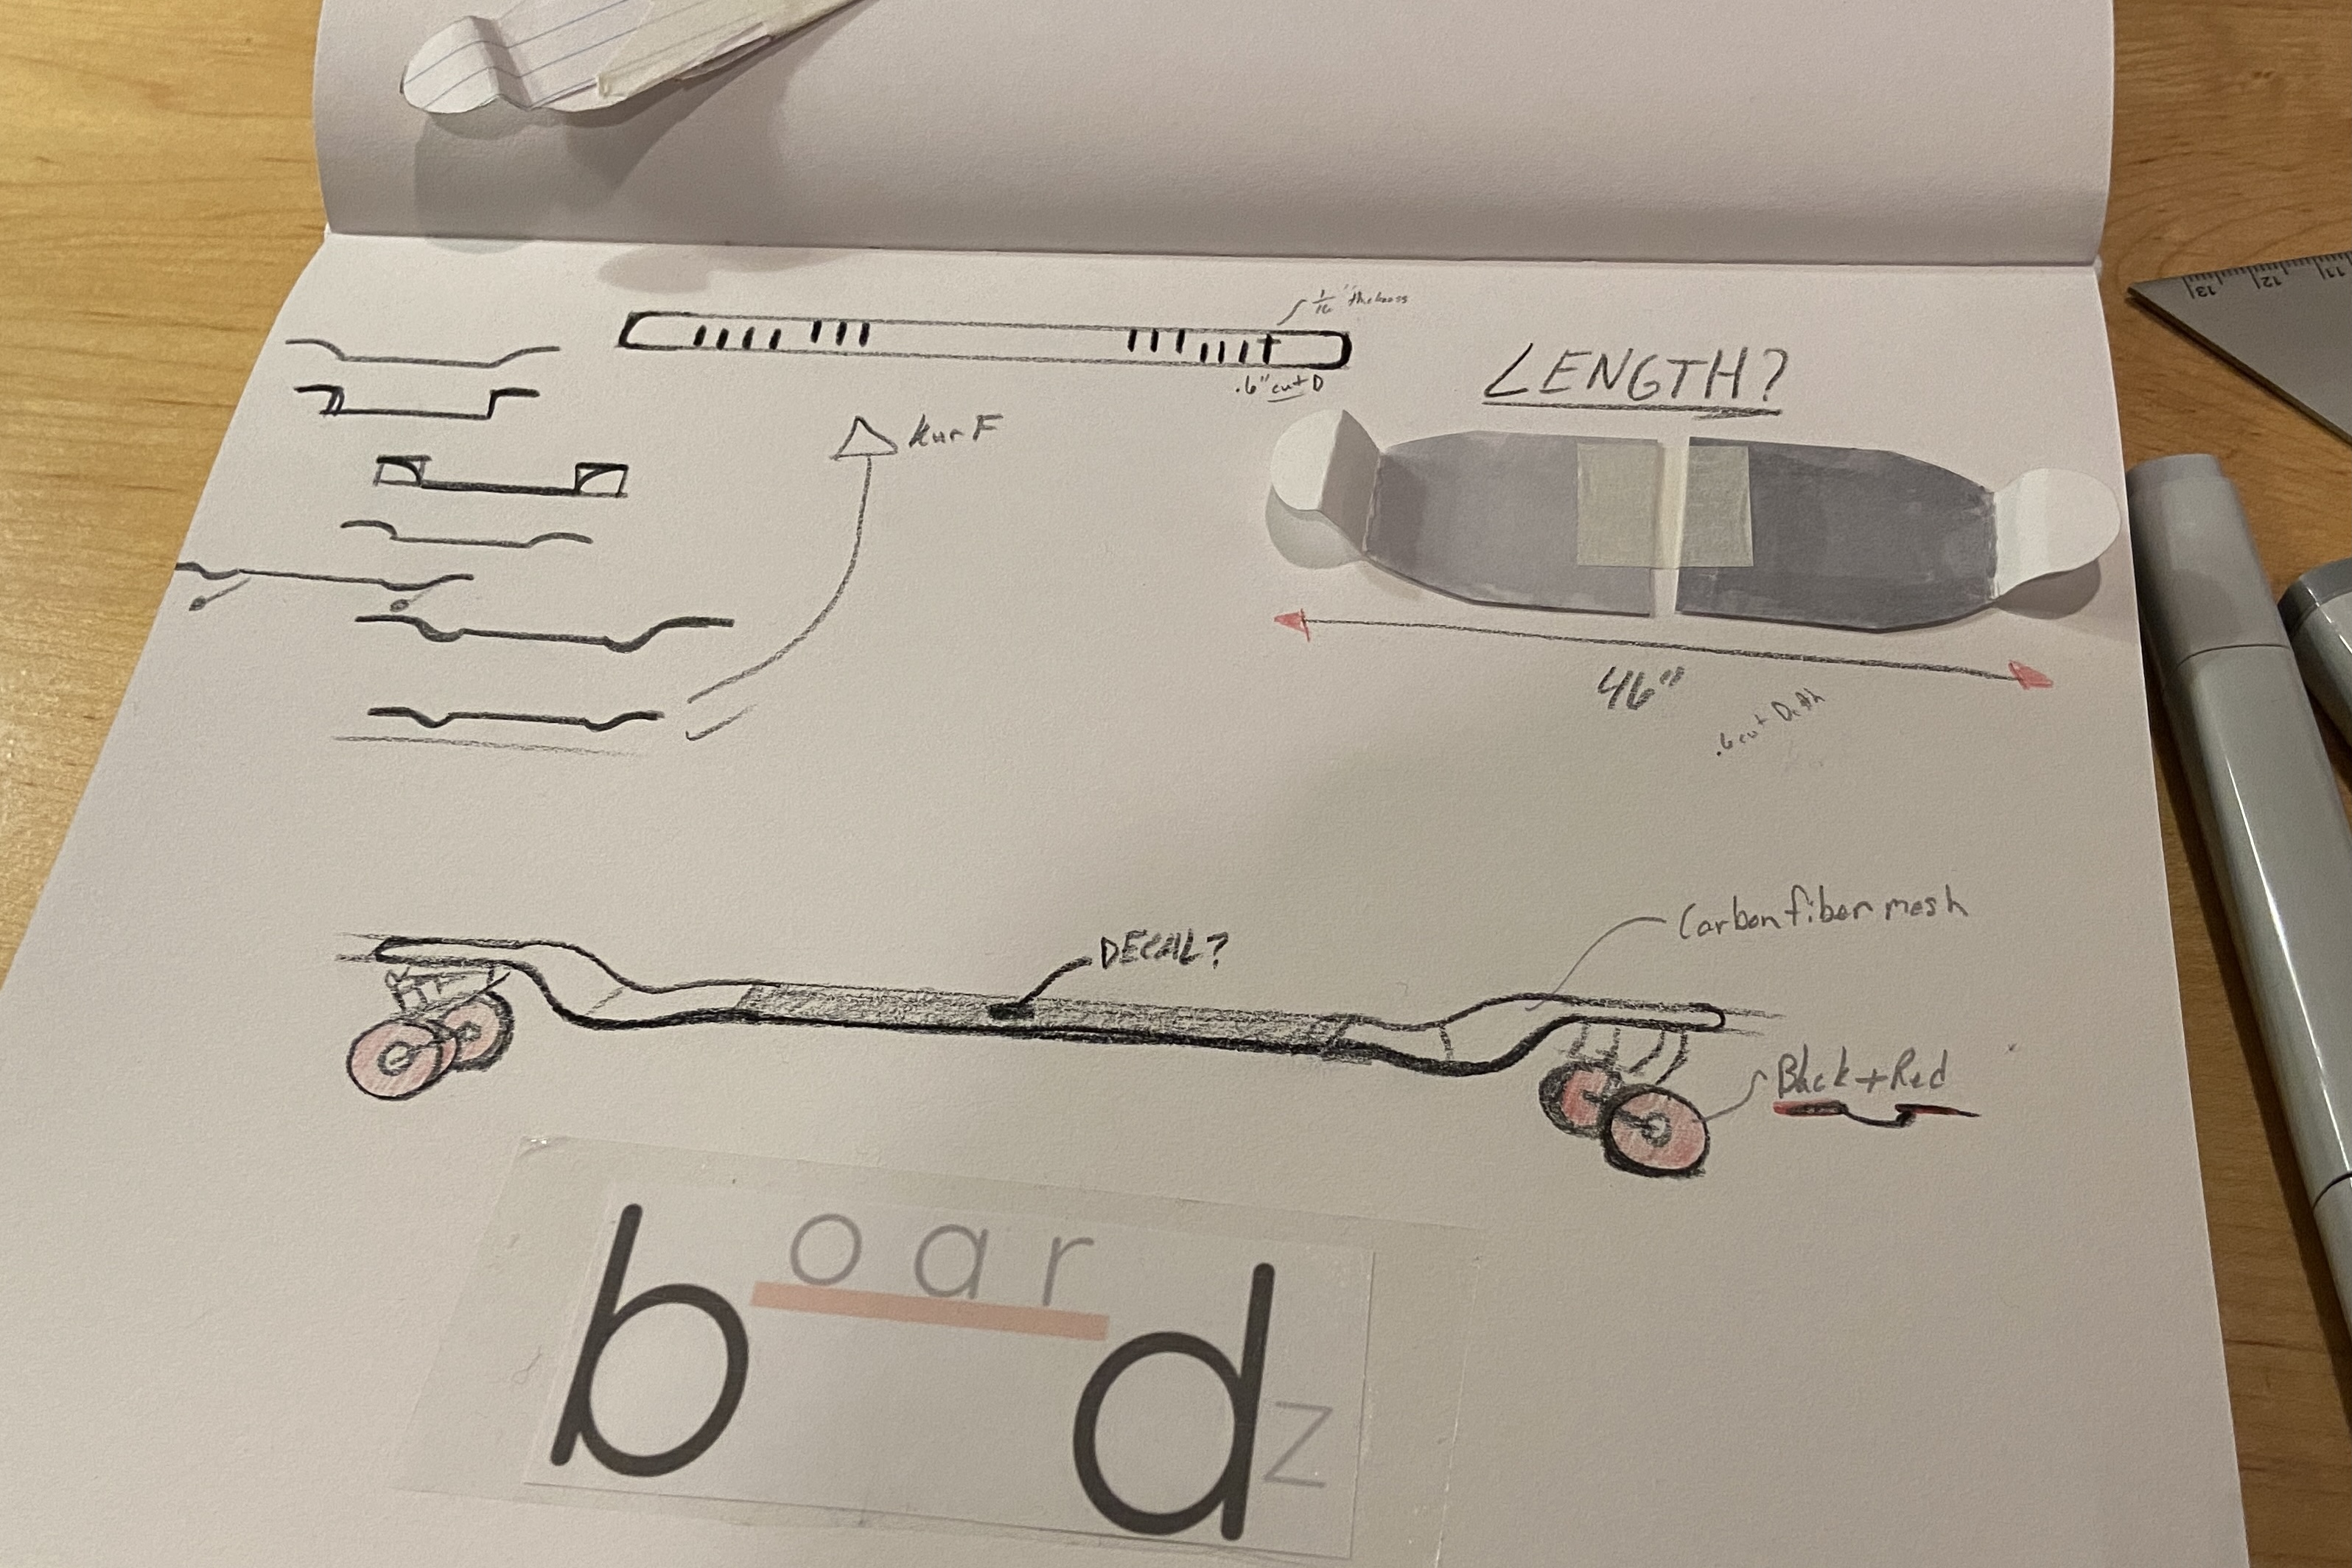 1/16" thickness
.6" cut D
KurF
LENGTH?
46"
.6 cut Depth
Carbon fiber mesh
DECAL?
Black + Red
boardz
13 12 11